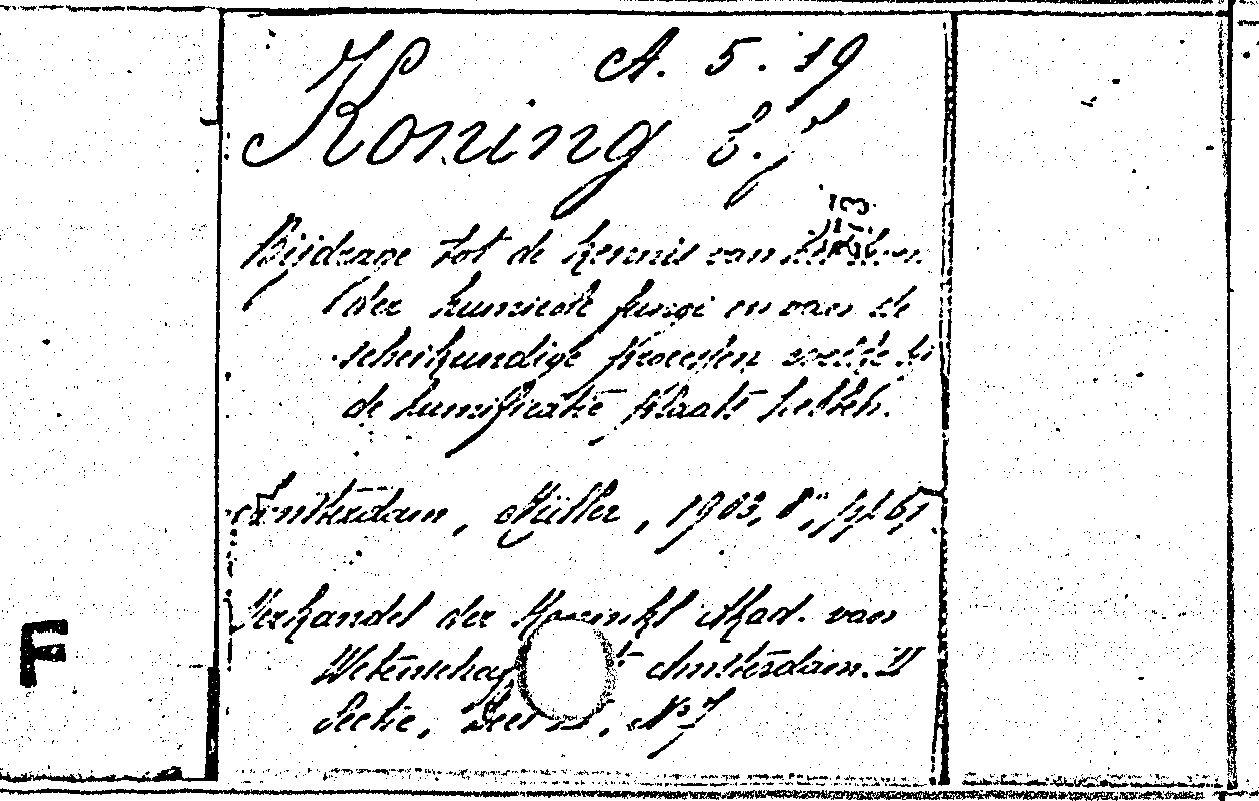 A. 5. 19
Koning
Bijdrage tot de kennis van het leven
der humicole fungi en van de
scheikundige processen welke bij
de humificatie plaats hebben.
Amsterdam, Müller, 1903, 8°,
Verhandel der Koninkl Akad. van
Amsterdam. II
Sectie, Deel
F